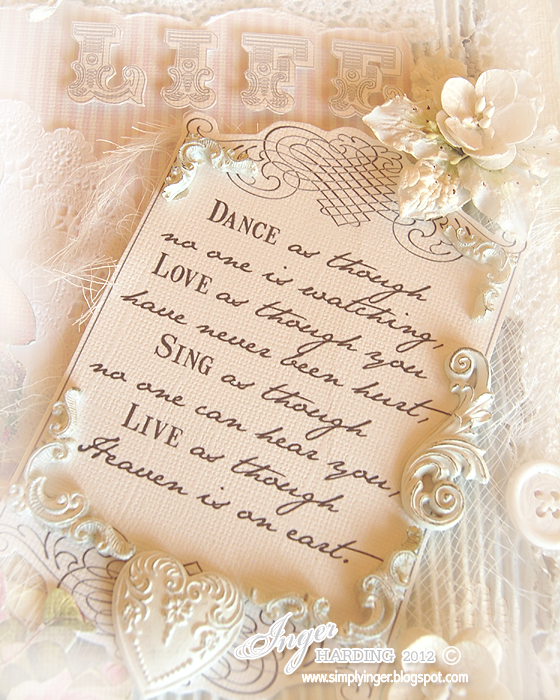 LIFE
DANCE as though
no one is watching,
LOVE as though you
have never been hurt,
SING as though
no one can hear you,
LIVE as though
Heaven is on eart.
Inger
HARDING 2012 ©
www.simplyinger.blogspot.com